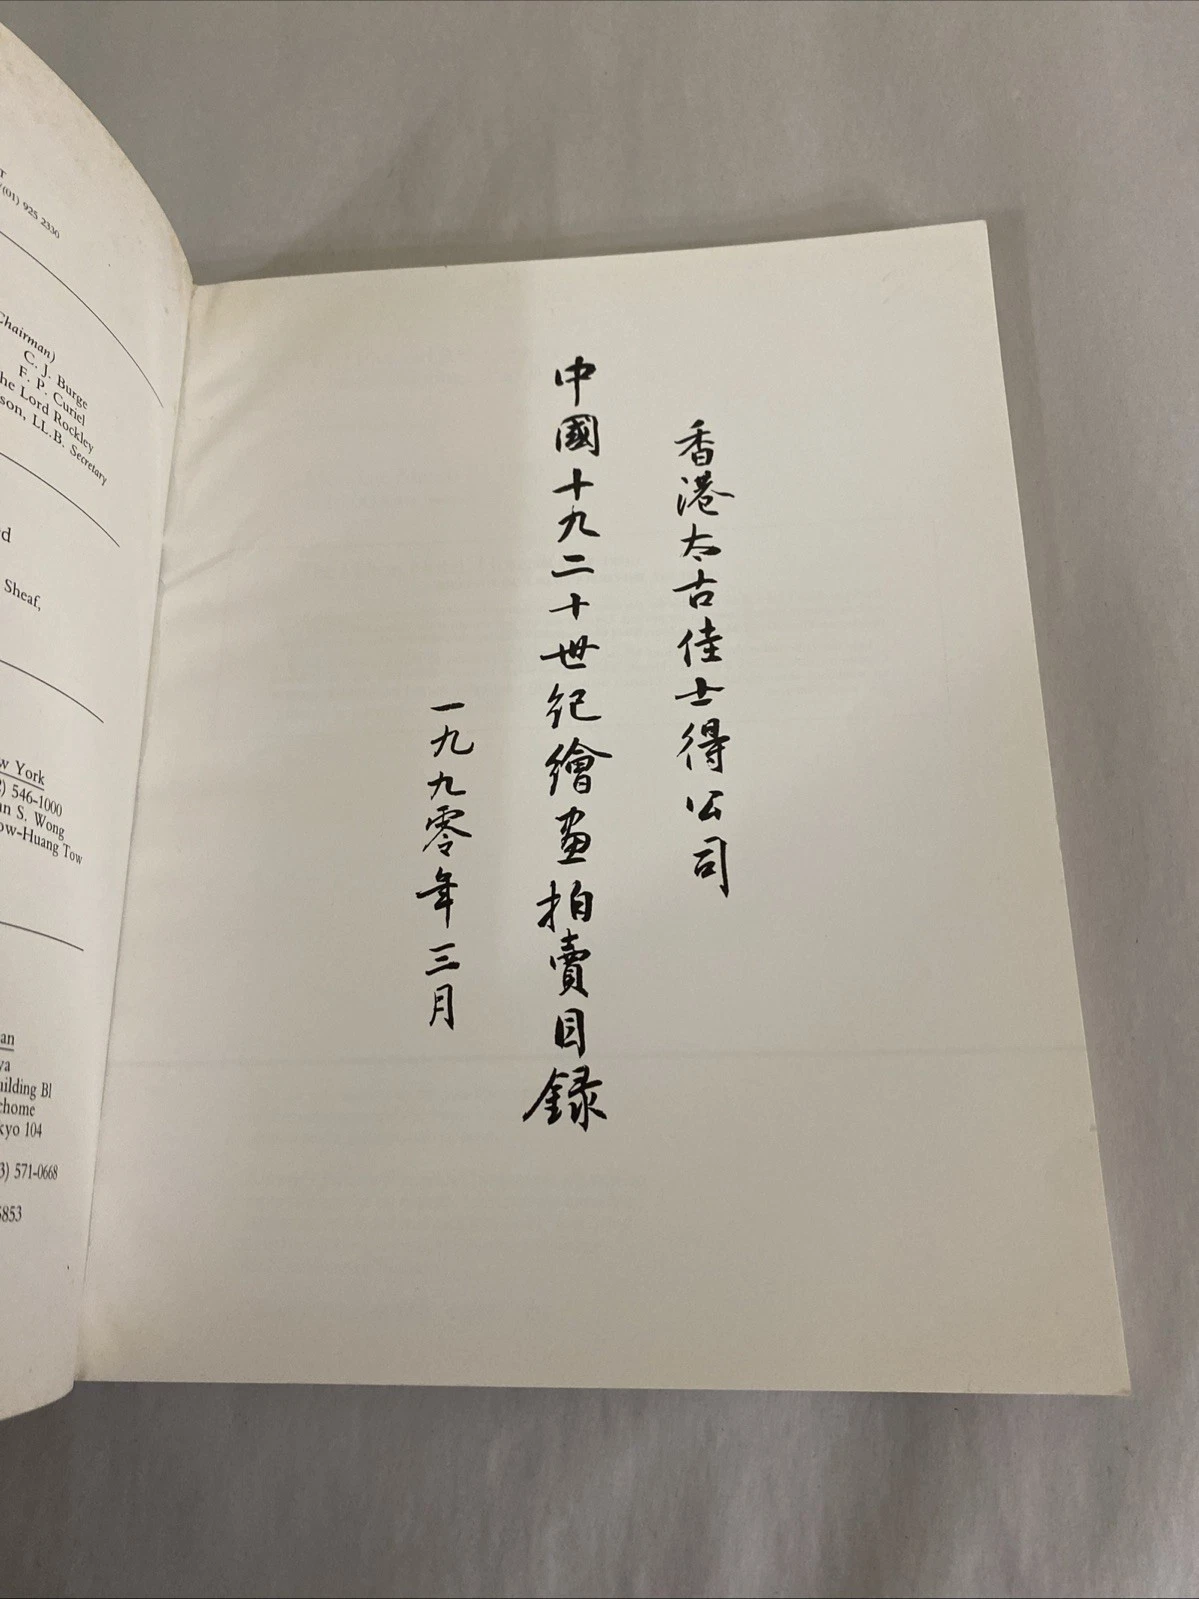 T
/(01) 925 2330
Chairman)
C. J. Burge
F. P. Curiel
he Lord Rockley
son, LL.B. Secretary
d
Sheaf,
w York
2) 546-1000
an S. Wong
ow-Huang Tow
an
ya
uilding Bl
chome
kyo 104
3) 571-0668
5853
香港太古佳士得公司
中國十九二十世紀繪畫拍賣目録
一九九零年三月